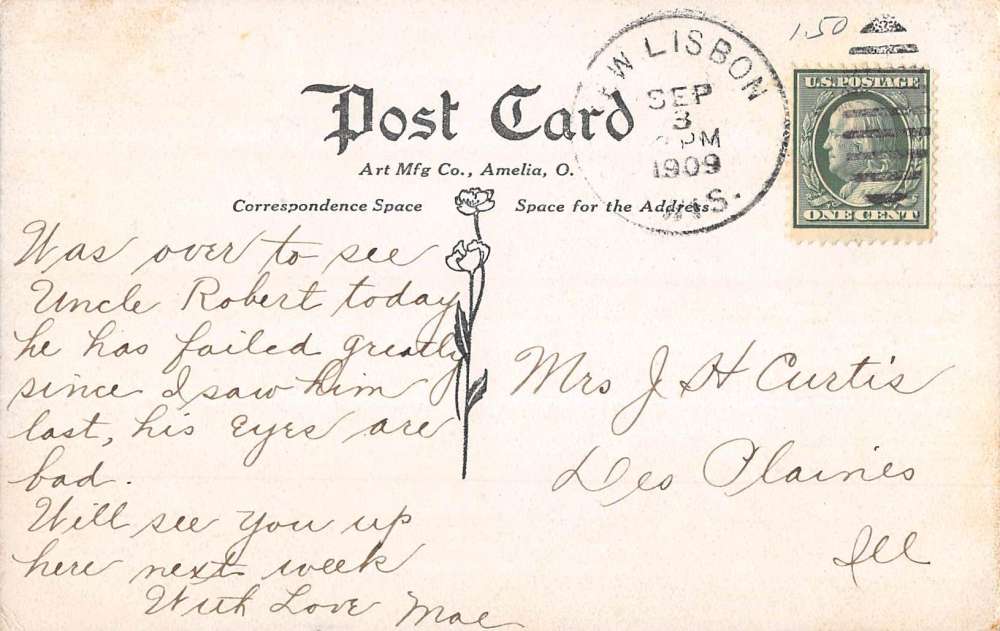 1.50
W LISBON
SEP
3
PM
1909
WIS.
U.S. POSTAGE
ONE CENT
Post Card
Art Mfg Co., Amelia, O.
Correspondence Space
Space for the Address.
Was over to see
Uncle Robert today
he has failed greatly
since I saw him
last, his eyes are
bad.
Will see you up
here next week
With Love Mae
Mrs J H Curtis
Des Plaines
Ill